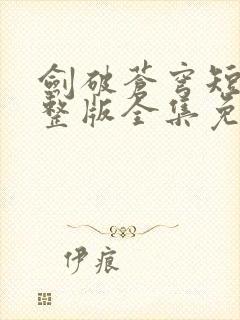 劍破蒼穹短
整版全集免
伊痕